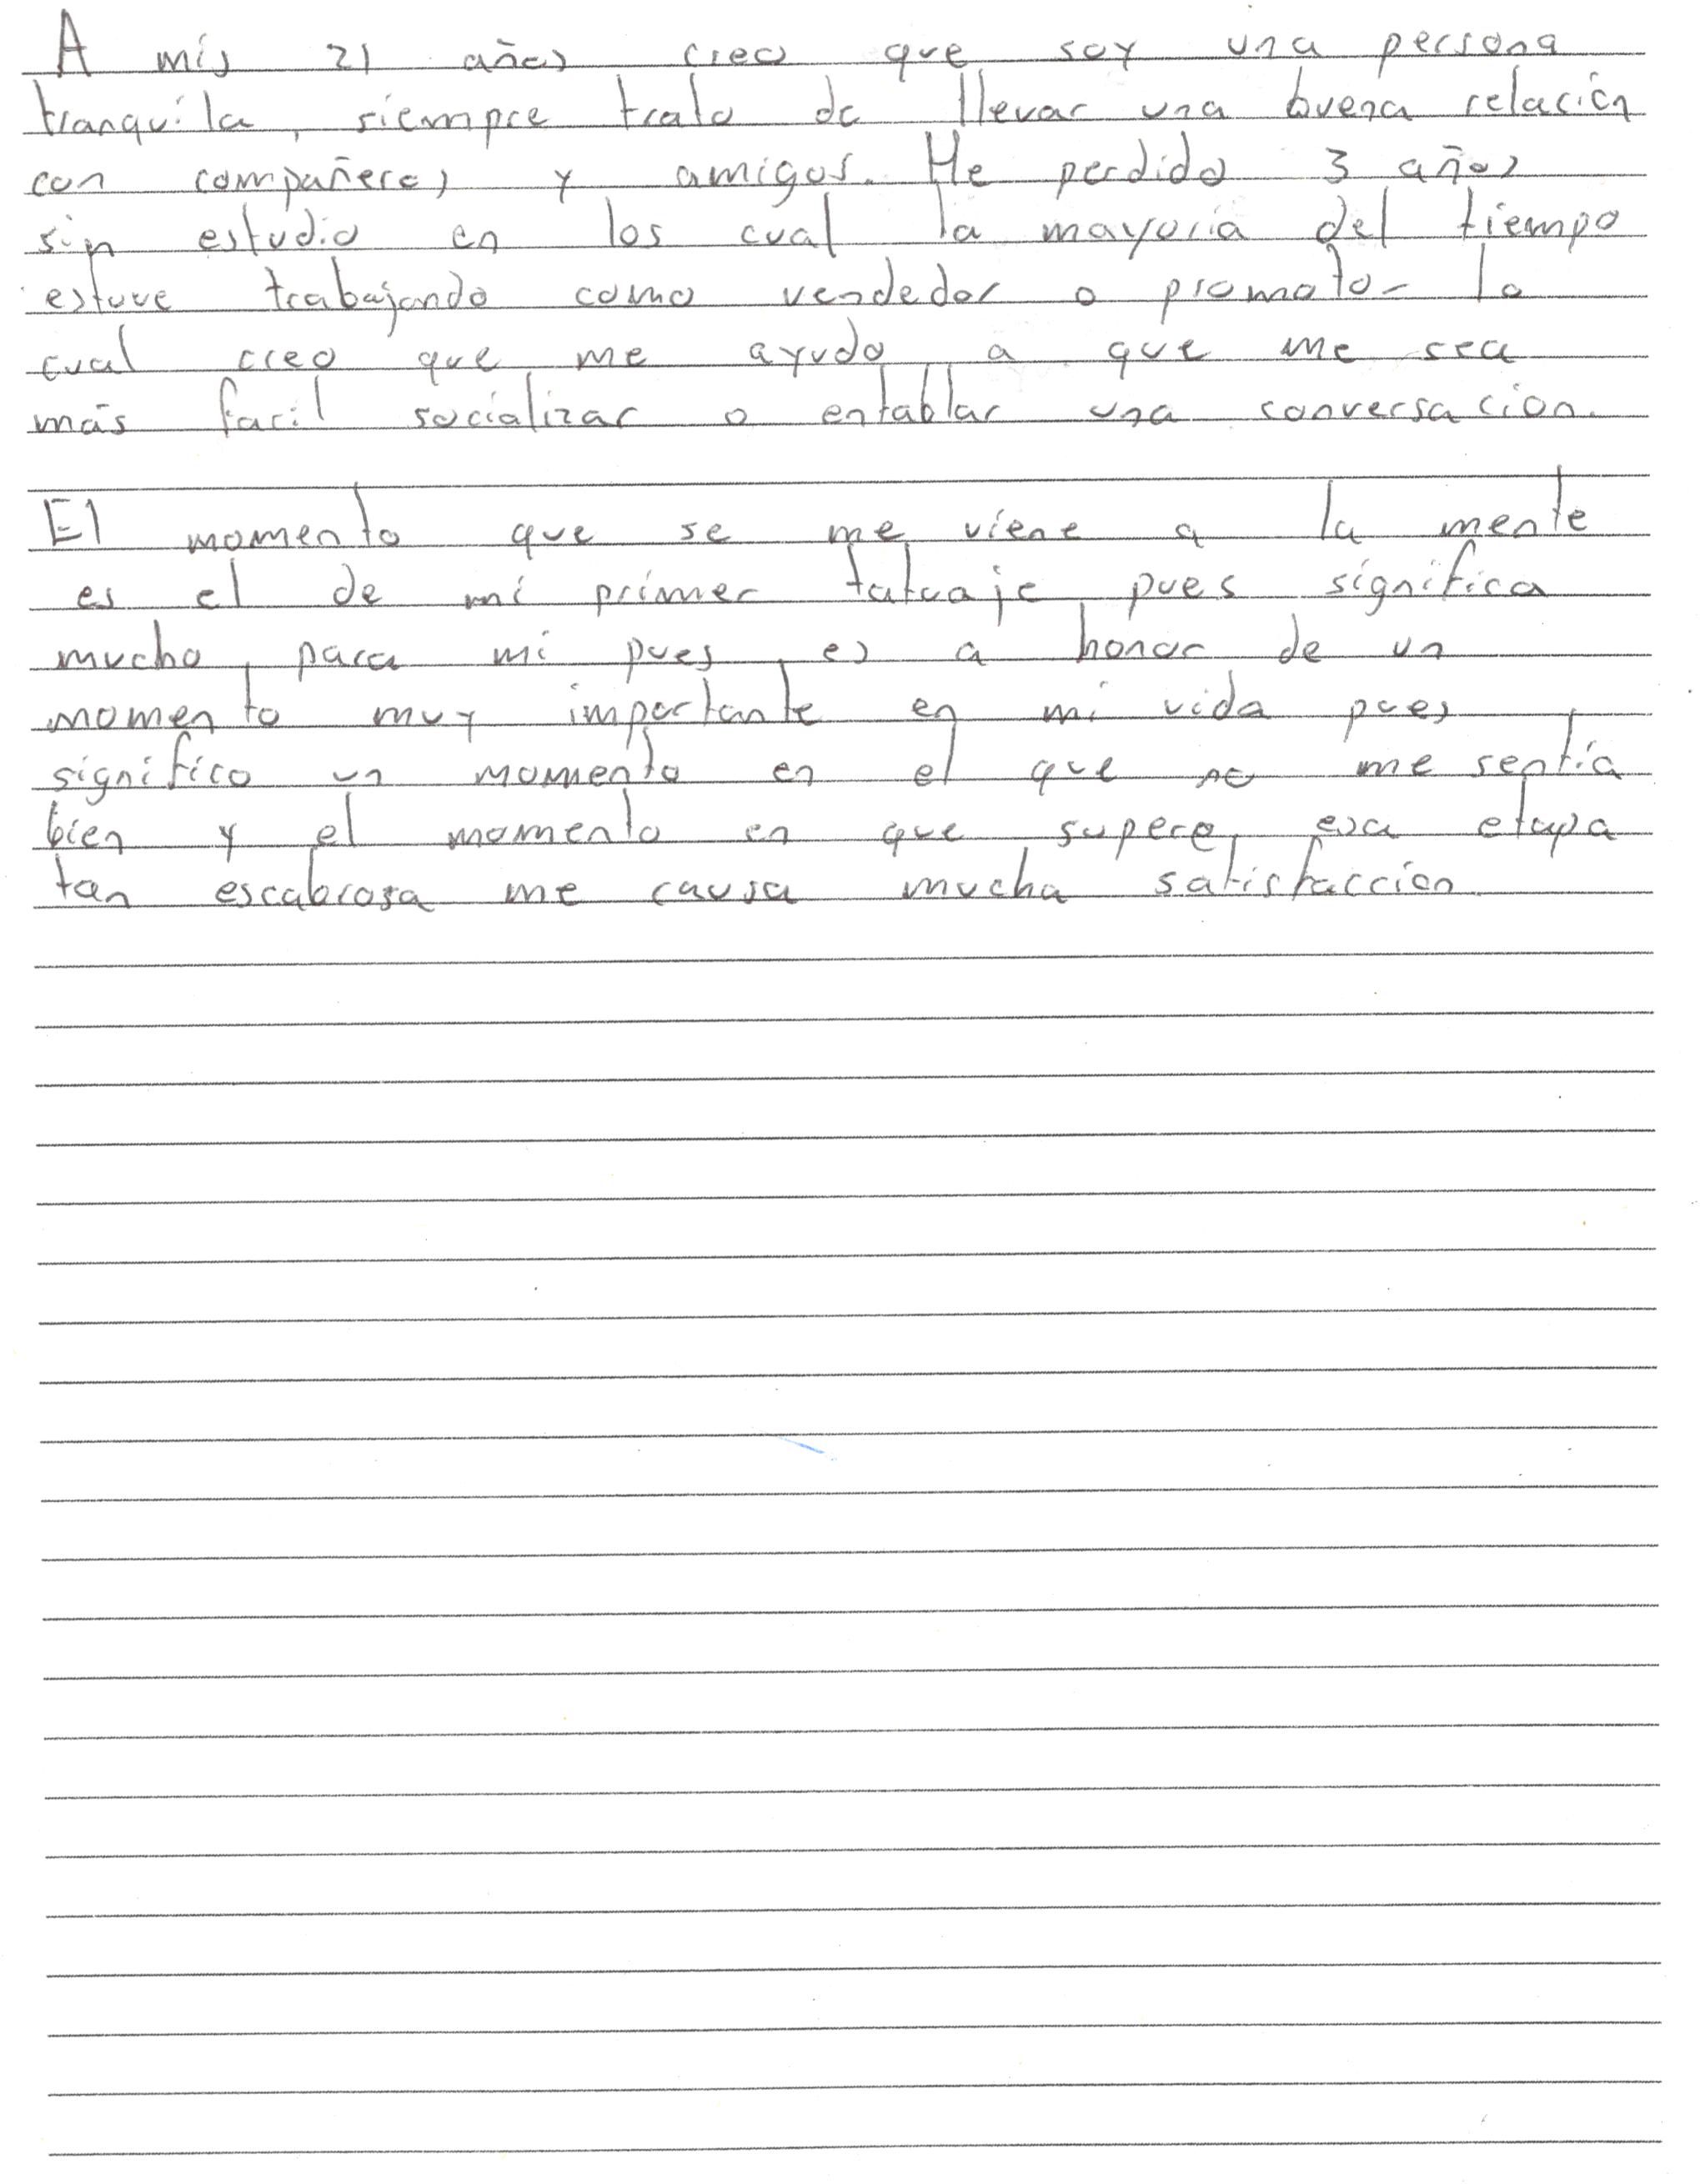 A mis 21 años creo que soy una persona
tranquila, siempre trato de llevar una buena relación
con compañeros y amigos. He perdido 3 años
sin estudio en los cual la mayoria del tiempo
estuve trabajando como vendedor o promotor lo
cual creo que me ayudo a que me sea
más facil socializar o entablar una conversacion.
El momento que se me viene a la mente
es el de mi primer tatuaje pues significa
mucho para mi pues es a honor de un
momento muy importante en mi vida pues
significo un momento en el que no me sentía
bien y el momento en que supere esa etapa
tan escabrosa me causa mucha satisfaccion